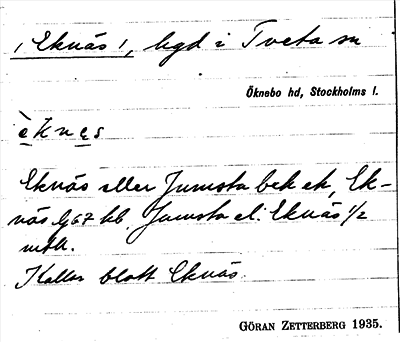 (Eknäs), bgd i Tveta sn
Öknebo hd, Stockholms l.
è k n e s
Eknäs eller Jumsta bek ek, Ek-
näs Gj67 hb. Jumsta el. Eknäs 1/2
mtl.
Kallas blott Eknäs.
GÖRAN ZETTERBERG 1935.